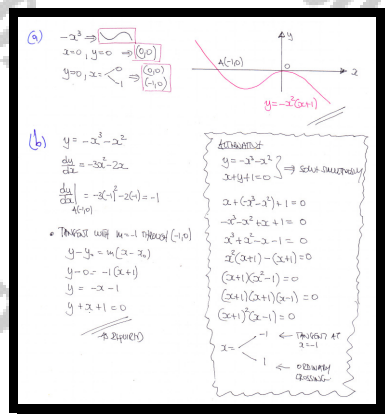 (a) -x³ ⇒
x=0, y=0 ⇒ (0,0)
y=0, x= < 0 ⇒ (0,0)
-1 (-1,0)
y
A(-1,0)
0
x
y=-x²(x+1)
(b) y = -x³-x²
dy/dx = -3x²-2x
dy/dx | A(-1,0) = -3(-1)²-2(-1) = -1
• TANGENT WITH m=-1 THROUGH (-1,0)
y-y₀ = m(x-x₀)
y-0 = -1(x+1)
y = -x-1
y+x+1 = 0
AS REQUIRED
ALTERNATIVE
y = -x³-x²
x+y+1=0 } ⇒ SOLVE SIMULTANEOUSLY
x+(-x³-x²)+1 = 0
-x³-x²+x+1 = 0
x³+x²-x-1 = 0
x²(x+1)-(x+1)=0
(x+1)(x²-1)=0
(x+1)(x+1)(x-1)=0
(x+1)²(x-1)=0
x= < -1 ← TANGENT AT x=-1
1 ← ORDINARY CROSSING